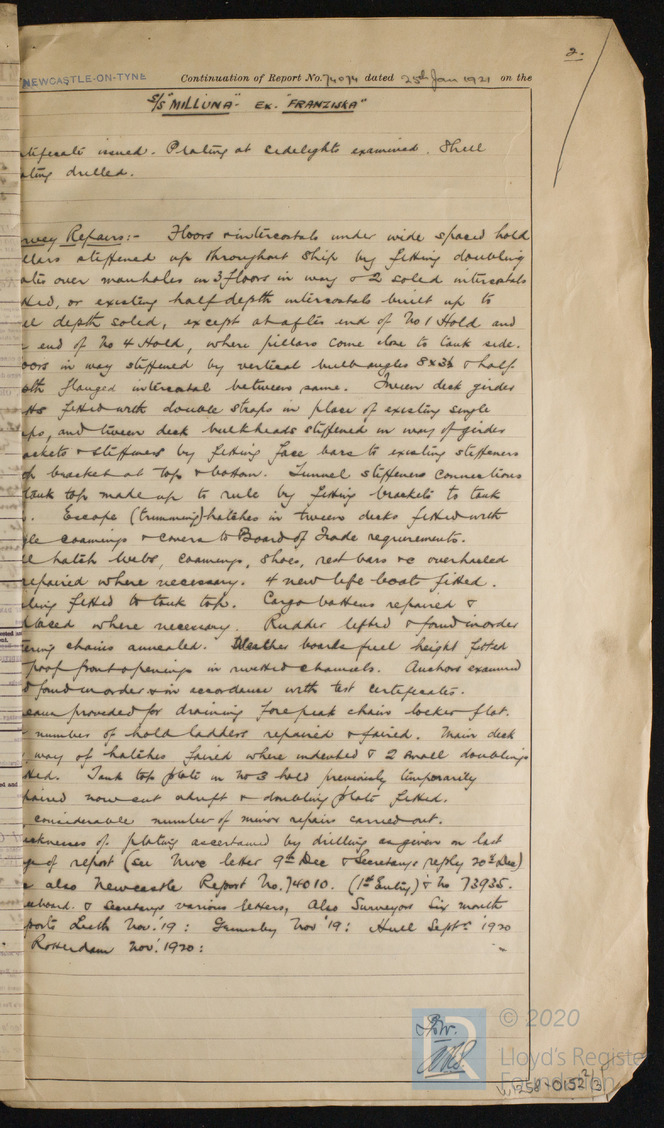 2.
NEWCASTLE-ON-TYNE Continuation of Report No. 74074 dated 25th Jan 1921 on the
S/S "MILLUNA" - Ex. "FRANZISKA"
tificate issued. Plating at sidelights examined. Shell
ating drilled.
rvey Repairs:- Floors & intercostals under wide spaced hold
llars stiffened up throughout ship by fitting doubling
ates over manholes in 3 floors in way & 2 solid intercostals
tted, or existing half depth intercostals built up to
ll depth solid, except at after end of No 1 Hold and
end of No 4 Hold, where pillars come close to tank side.
oors in way stiffened by vertical bulb angles 8 x 3½ & half
pth flanged intercostal between same. Tween deck girder
fitted with double straps in place of existing single
aps, and tween deck bulkheads stiffened in way of girder
ackets & stiffeners by fitting face bars to existing stiffeners
bracket at top & bottom. Tunnel stiffeners connections
tank top made up to rule by fitting brackets to tank
. Escape (trimming) hatches in tween decks fitted with
coamings & covers to Board of Trade requirements.
hatch webs, coamings, shoes, rest bars &c overhauled
repaired where necessary. 4 new life boats fitted.
ling fitted to tank top. Cargo battens repaired &
placed where necessary. Rudder lifted & found in order
ering chains annealed. Weather boards full height fitted
poop front openings in rivetted channels. Anchors examined
d found in order & in accordance with test certificates.
eans provided for draining fore peak chain locker flat.
number of hold ladders repaired & faired. Main deck
way of hatches faired where indented & 2 small doublings
tted. Tank top plate in No 3 hold previously temporarily
paired now cut adrift & doubling plate fitted.
considerable number of minor repairs carried out.
icknesses of plating ascertained by drilling as given on last
ge of report (see Nwc letter 9th Dec & Secretarys reply 20th Dec)
also Newcastle Report No. 74010. (1st Entry) & No 73935.
eeboard. & Secretarys various letters, Also Surveyors Six month
ports Leith Nov. '19: Grimsby Nov '19: Hull Septr 1920
Rotterdam Nov. 1920:
© 2020
Lloyd's Register
Foundation
W1258-0152 2/3